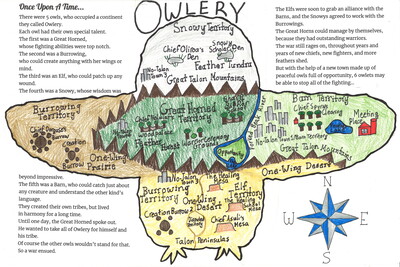 Once Upon A Time...
There were 5 owls, who occupied a continent
they called Owlery.
Each owl had their own special talent.
The first was a Great Horned,
whose fighting abilities were top notch.
The second was a Burrowing,
who could create anything with her wings or
mind.
The third was an Elf, who could patch up any
wound.
The fourth was a Snowy, whose wisdom was
beyond impressive.
The fifth was a Barn, who could catch just about
any creature and understand the other kind's
language.
They created their own tribes, but lived
in harmony for a long time.
Until one day, the Great Horned spoke out.
He wanted to take all of Owlery for himself and
his tribe.
Of course the other owls wouldn't stand for that.
So a war ensued.
The Elfs were soon to grab an alliance with the
Barns, and the Snowys agreed to work with the
Burrowings.
The Great Horns could manage by themselves,
because they had outstanding warriors.
The war still rages on, throughout years and
years of new chiefs, new fighters, and more
feathers shed.
But with the help of a new town made up of
peaceful owls full of opportunity, 6 owlets may
be able to stop all of the fighting...
OWLERY
Snowy Territory
Chief Olinoa's
Den
Snowy
Den
Feather Tundra
No-Talon
Town
Great Talon Mountains
Burrowing
Territory
Burrow
Prairie
One-Wing
Great Horned
Territory
Feather
Ceremony
Grounds
River
Opportunity
Barn Territory
Chief Spring's
Clearing
Meeting
Place
No-Talon Town
Barn Territory
Great Talon Mountains
One-Wing Desert
No-Talon
Town
The Healing
Mesa
Burrowing
Territory
Elf
Territory
One-Wing
Desert
Creation Burrow
The Healing
Mesa
Chief Asali's
Mesa
Talon Peninsulas
N
W
E
S